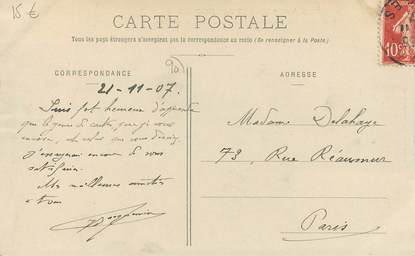 15 €
CARTE POSTALE
Tous les pays étrangers n'acceptent pas la correspondance au recto (Se renseigner à la Poste)
90
CORRESPONDANCE
ADRESSE
21-11-07.
Suis fort heureux d'apprendre
que le genre de cartes que je vous
envoie, est celui que vous désirez
J'essayerai encore de vous
satisfaire.
Mes meilleures amitiés
à tous
Madame Delahaye
73, Rue Réaumur
Paris
10